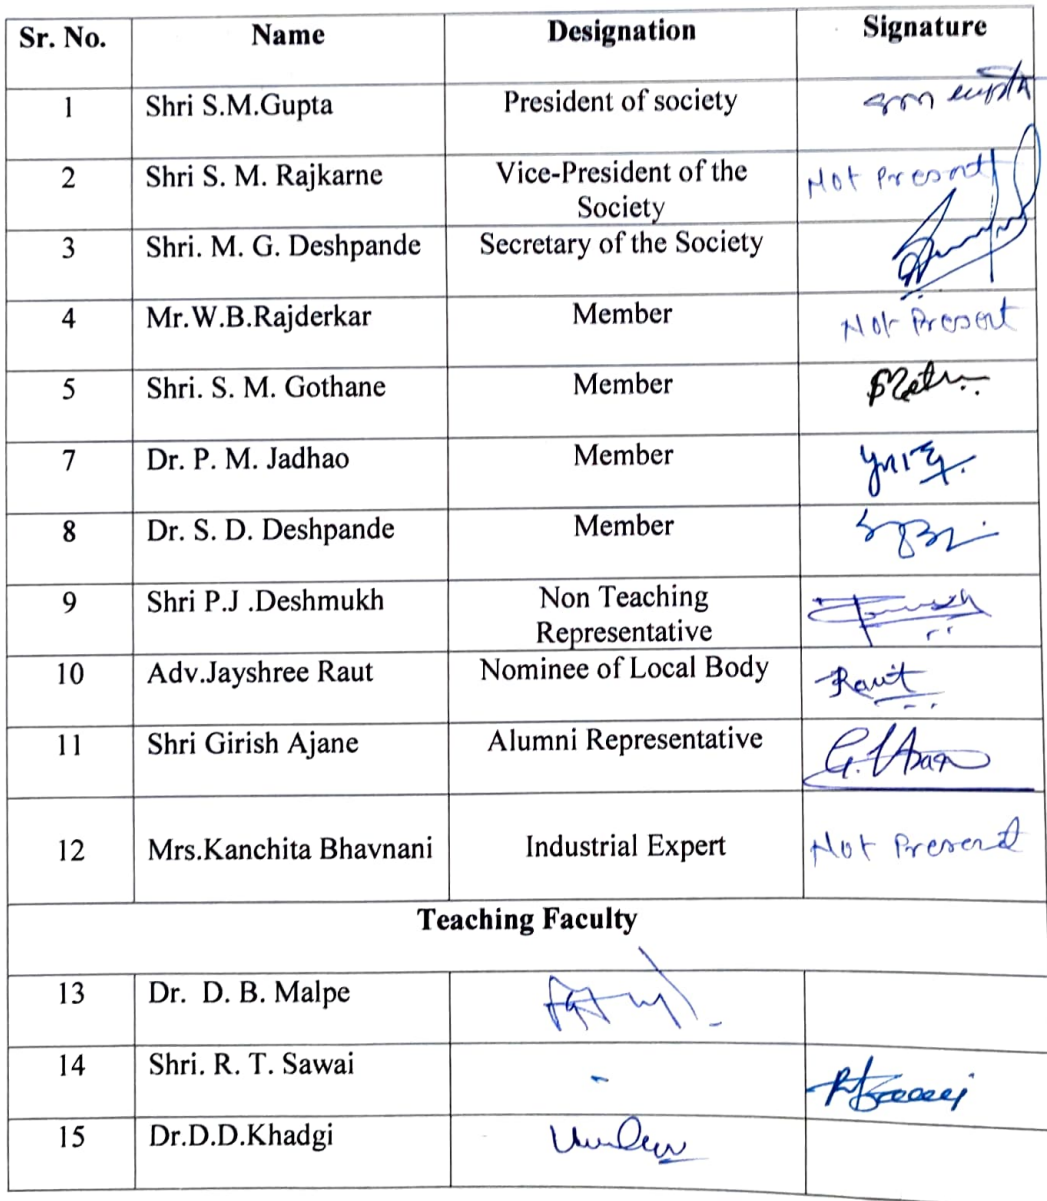 Sr. No. Name Designation Signature
1 Shri S.M.Gupta President of society
2 Shri S. M. Rajkarne Vice-President of the Not Present
Society
3 Shri. M. G. Deshpande Secretary of the Society
4 Mr.W.B.Rajderkar Member Not Present
5 Shri. S. M. Gothane Member
7 Dr. P. M. Jadhao Member
8 Dr. S. D. Deshpande Member
9 Shri P.J .Deshmukh Non Teaching
Representative
10 Adv.Jayshree Raut Nominee of Local Body Raut
11 Shri Girish Ajane Alumni Representative
12 Mrs.Kanchita Bhavnani Industrial Expert Not Present
Teaching Faculty
13 Dr. D. B. Malpe
14 Shri. R. T. Sawai -
15 Dr.D.D.Khadgi